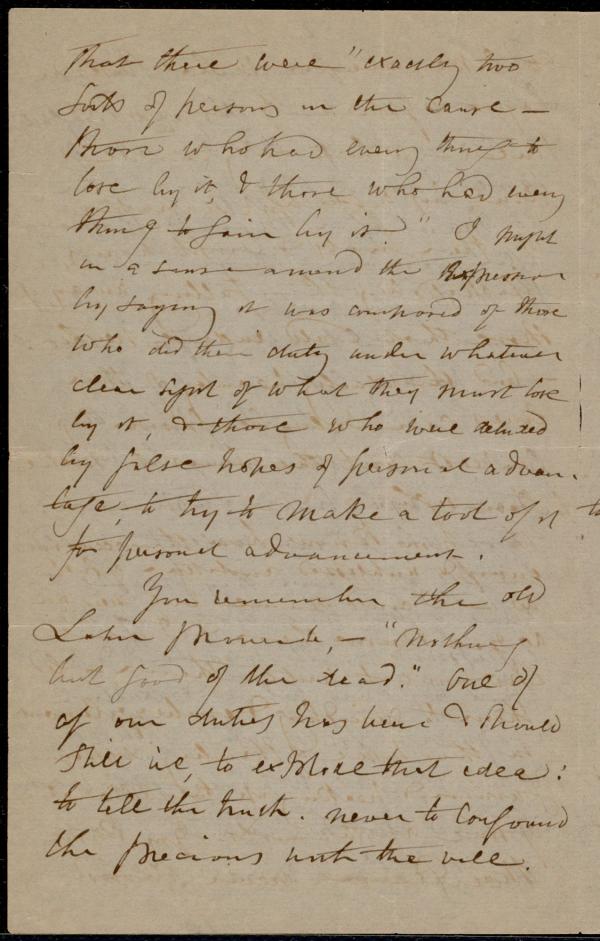 that there were "exactly two
sorts of persons in the cause —
those who had every thing to
lose by it, & those who had every
thing to gain by it." I might
in a sense amend the expression
by saying it was composed of those
who did their duty under whatever
clear sight of what they must lose
by it, & those who were deluded
by false hopes of personal advan-
tage, to try to make a tool of it
for personal advancement.
You remember the old
Latin proverb, — "nothing
but good of the dead." One of
of our duties has been & should
still be, to explode that idea:
to tell the truth. never to confound
the precious with the vile.